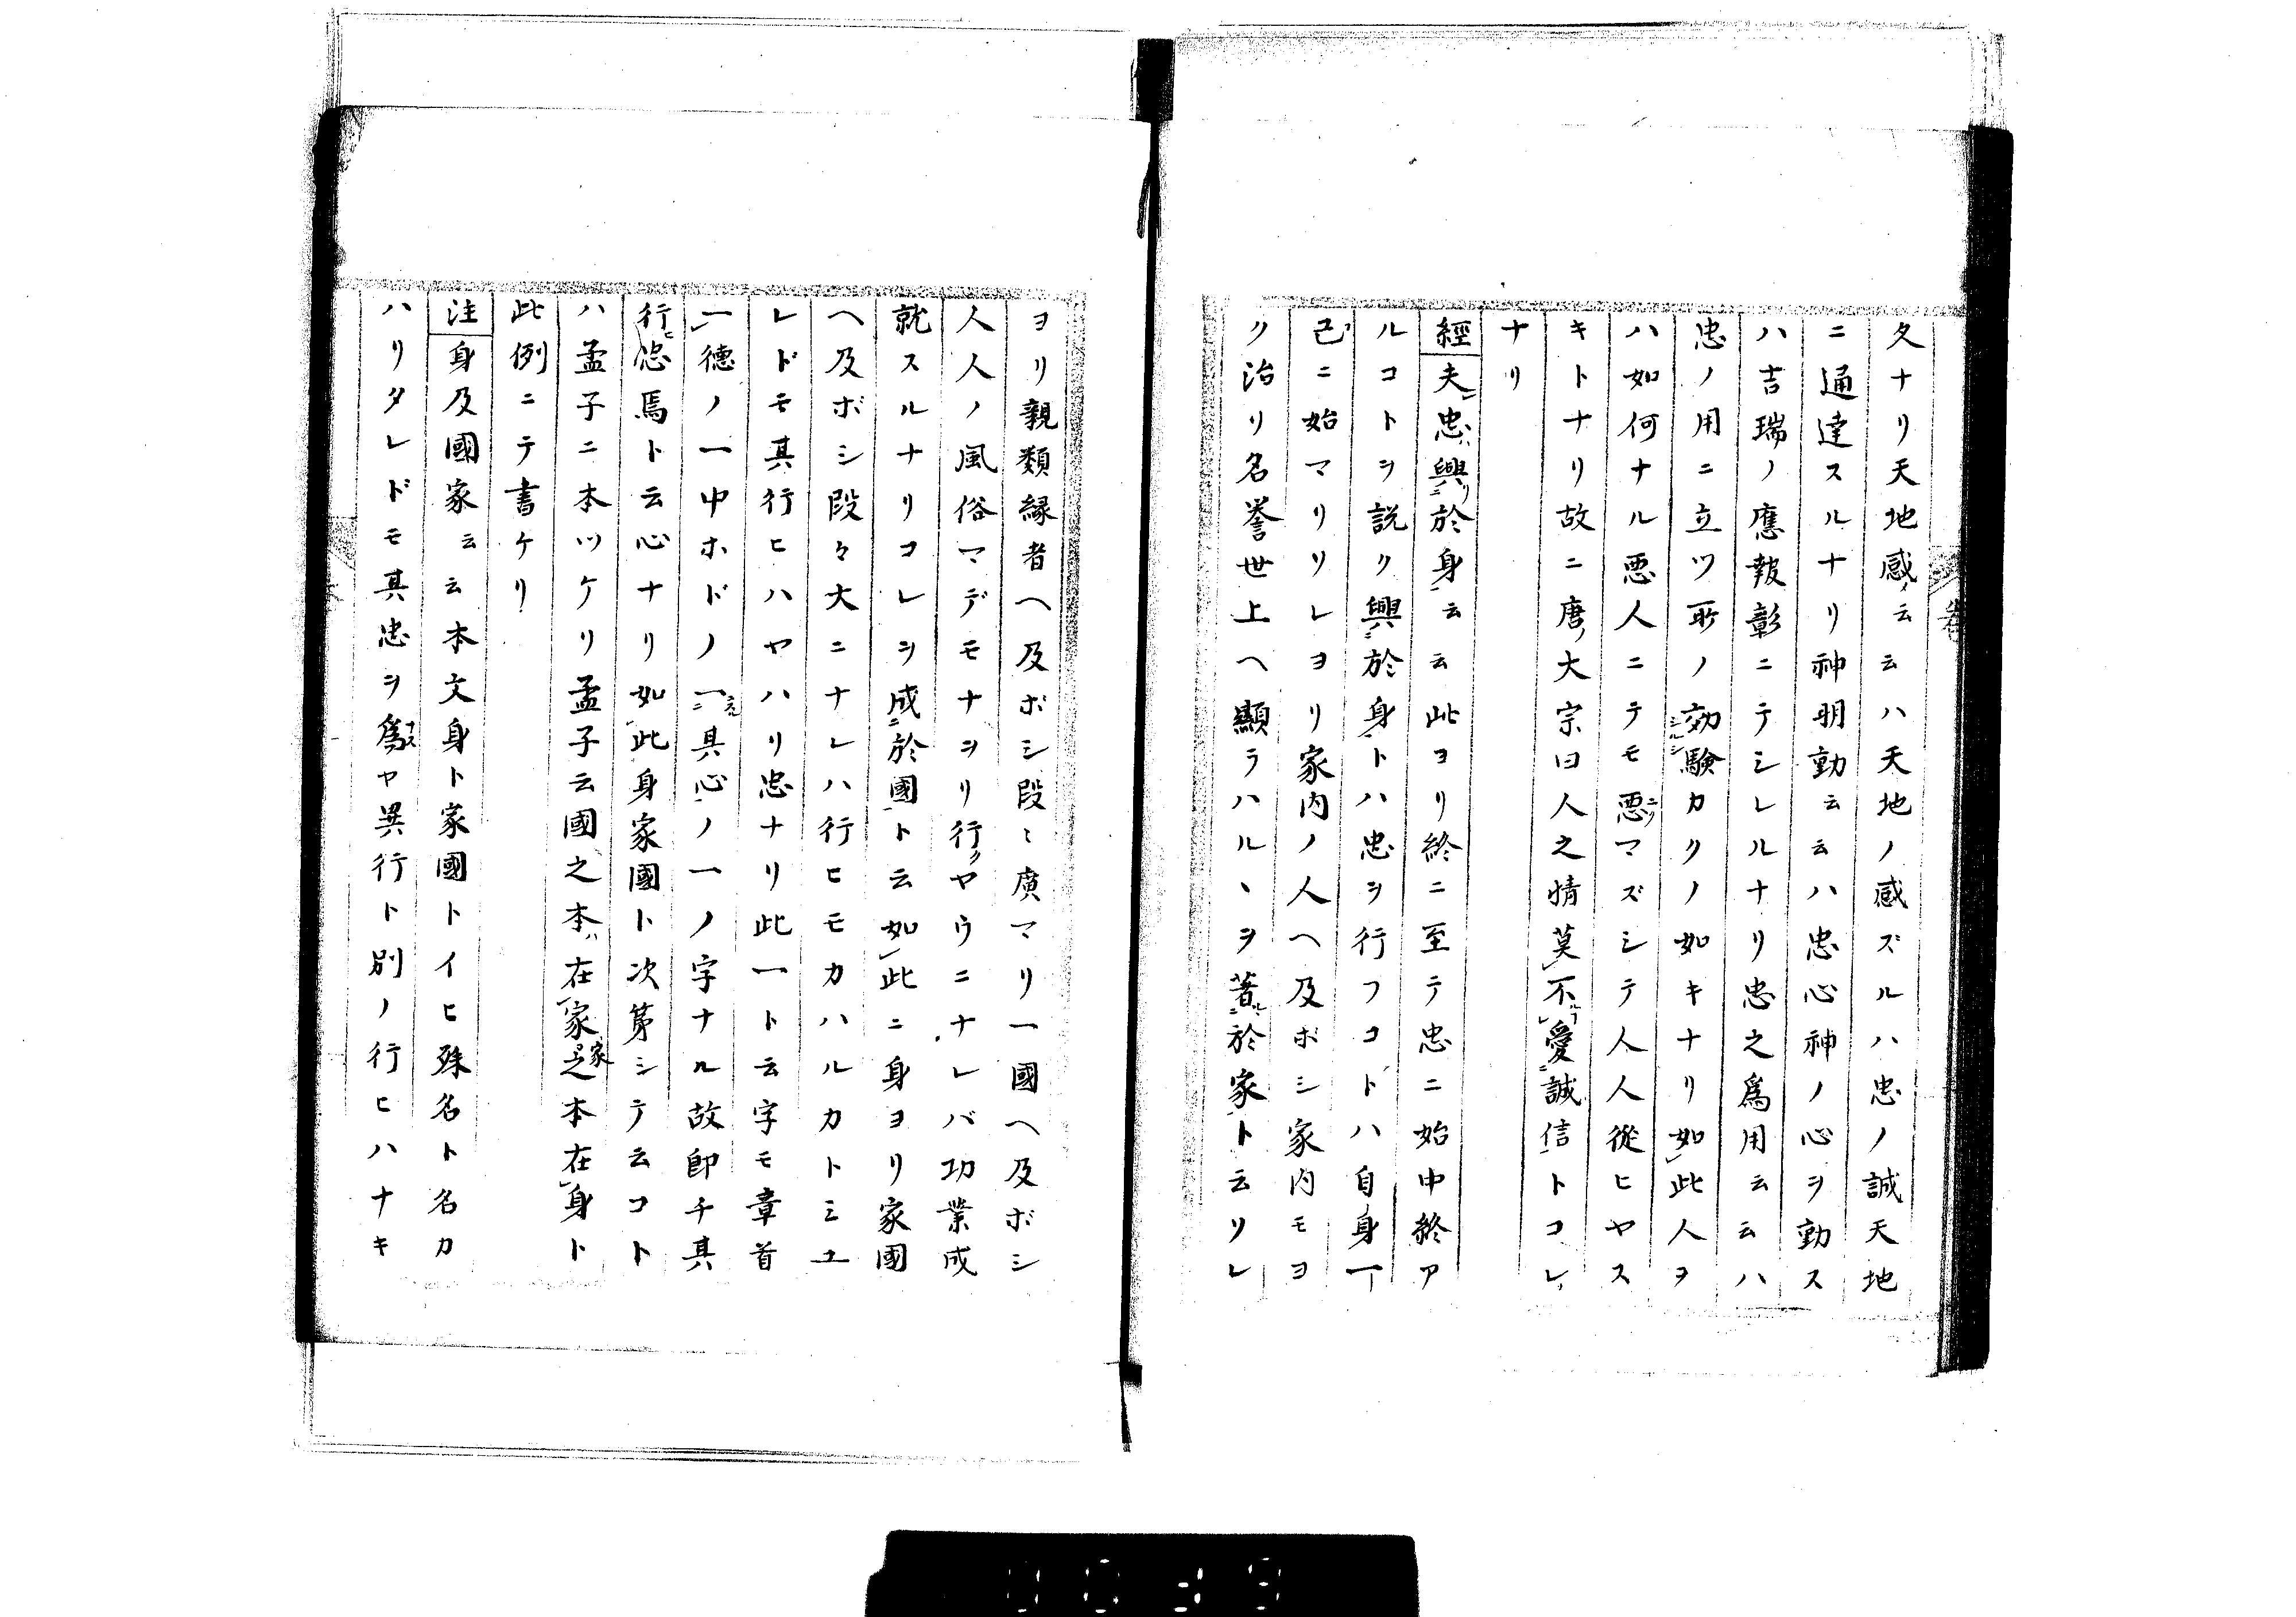 タナリ天地感云云ハ天地ノ感ズルハ忠ノ誠天地
ニ通達スルナリ神明動云云ハ忠心神ノ心ヲ動ス
ハ吉瑞ノ應報彰ニテシレルナリ忠之爲用云云ハ
忠ノ用ニ立ツ所ノ効驗カクノ如キナリ如此人ヲ
ハ如何ナル悪人ニテモ悪マズシテ人人從ヒヤス
キトナリ故ニ唐ノ大宗曰人之情莫不愛誠信トコレ
ナリ
經夫忠興於身云云此ヨリ終ニ至テ忠ニ始中終ア
ルコトヲ説ク興於身トハ忠ヲ行フコトハ自身一
己ニ始マリソレヨリ家内ノ人ヘ及ボシ家内モヨ
ク治リ名誉世上ヘ顯ラハルヽヲ著於家ト云ソレ
ヨリ親類縁者ヘ及ボシ段〻廣マリ一國ヘ及ボシ
人人ノ風俗マデモナヲリ行クヤウニナレバ功業成
就スルナリコレヲ成於國ト云如此ニ身ヨリ家國
ヘ及ボシ段々大ニナレハ行ヒモカハルカトミユ
レドモ其行ヒハヤハリ忠ナリ此一ト云字モ章首
一德ノ一中ホドノ一其心ノ一ノ字ナル故即チ其
行ヒ忠焉ト云心ナリ如此身家國ト次第シテ云コト
ハ孟子ニ本ツケリ孟子云國之本ハ在家家之本在身ト
此例ニテ書ケリ
注身及國家云云本文身ト家國トイヒ殊名ト名カ
ハリタレドモ其忠ヲ爲ヤ異行ト別ノ行ヒハナキ